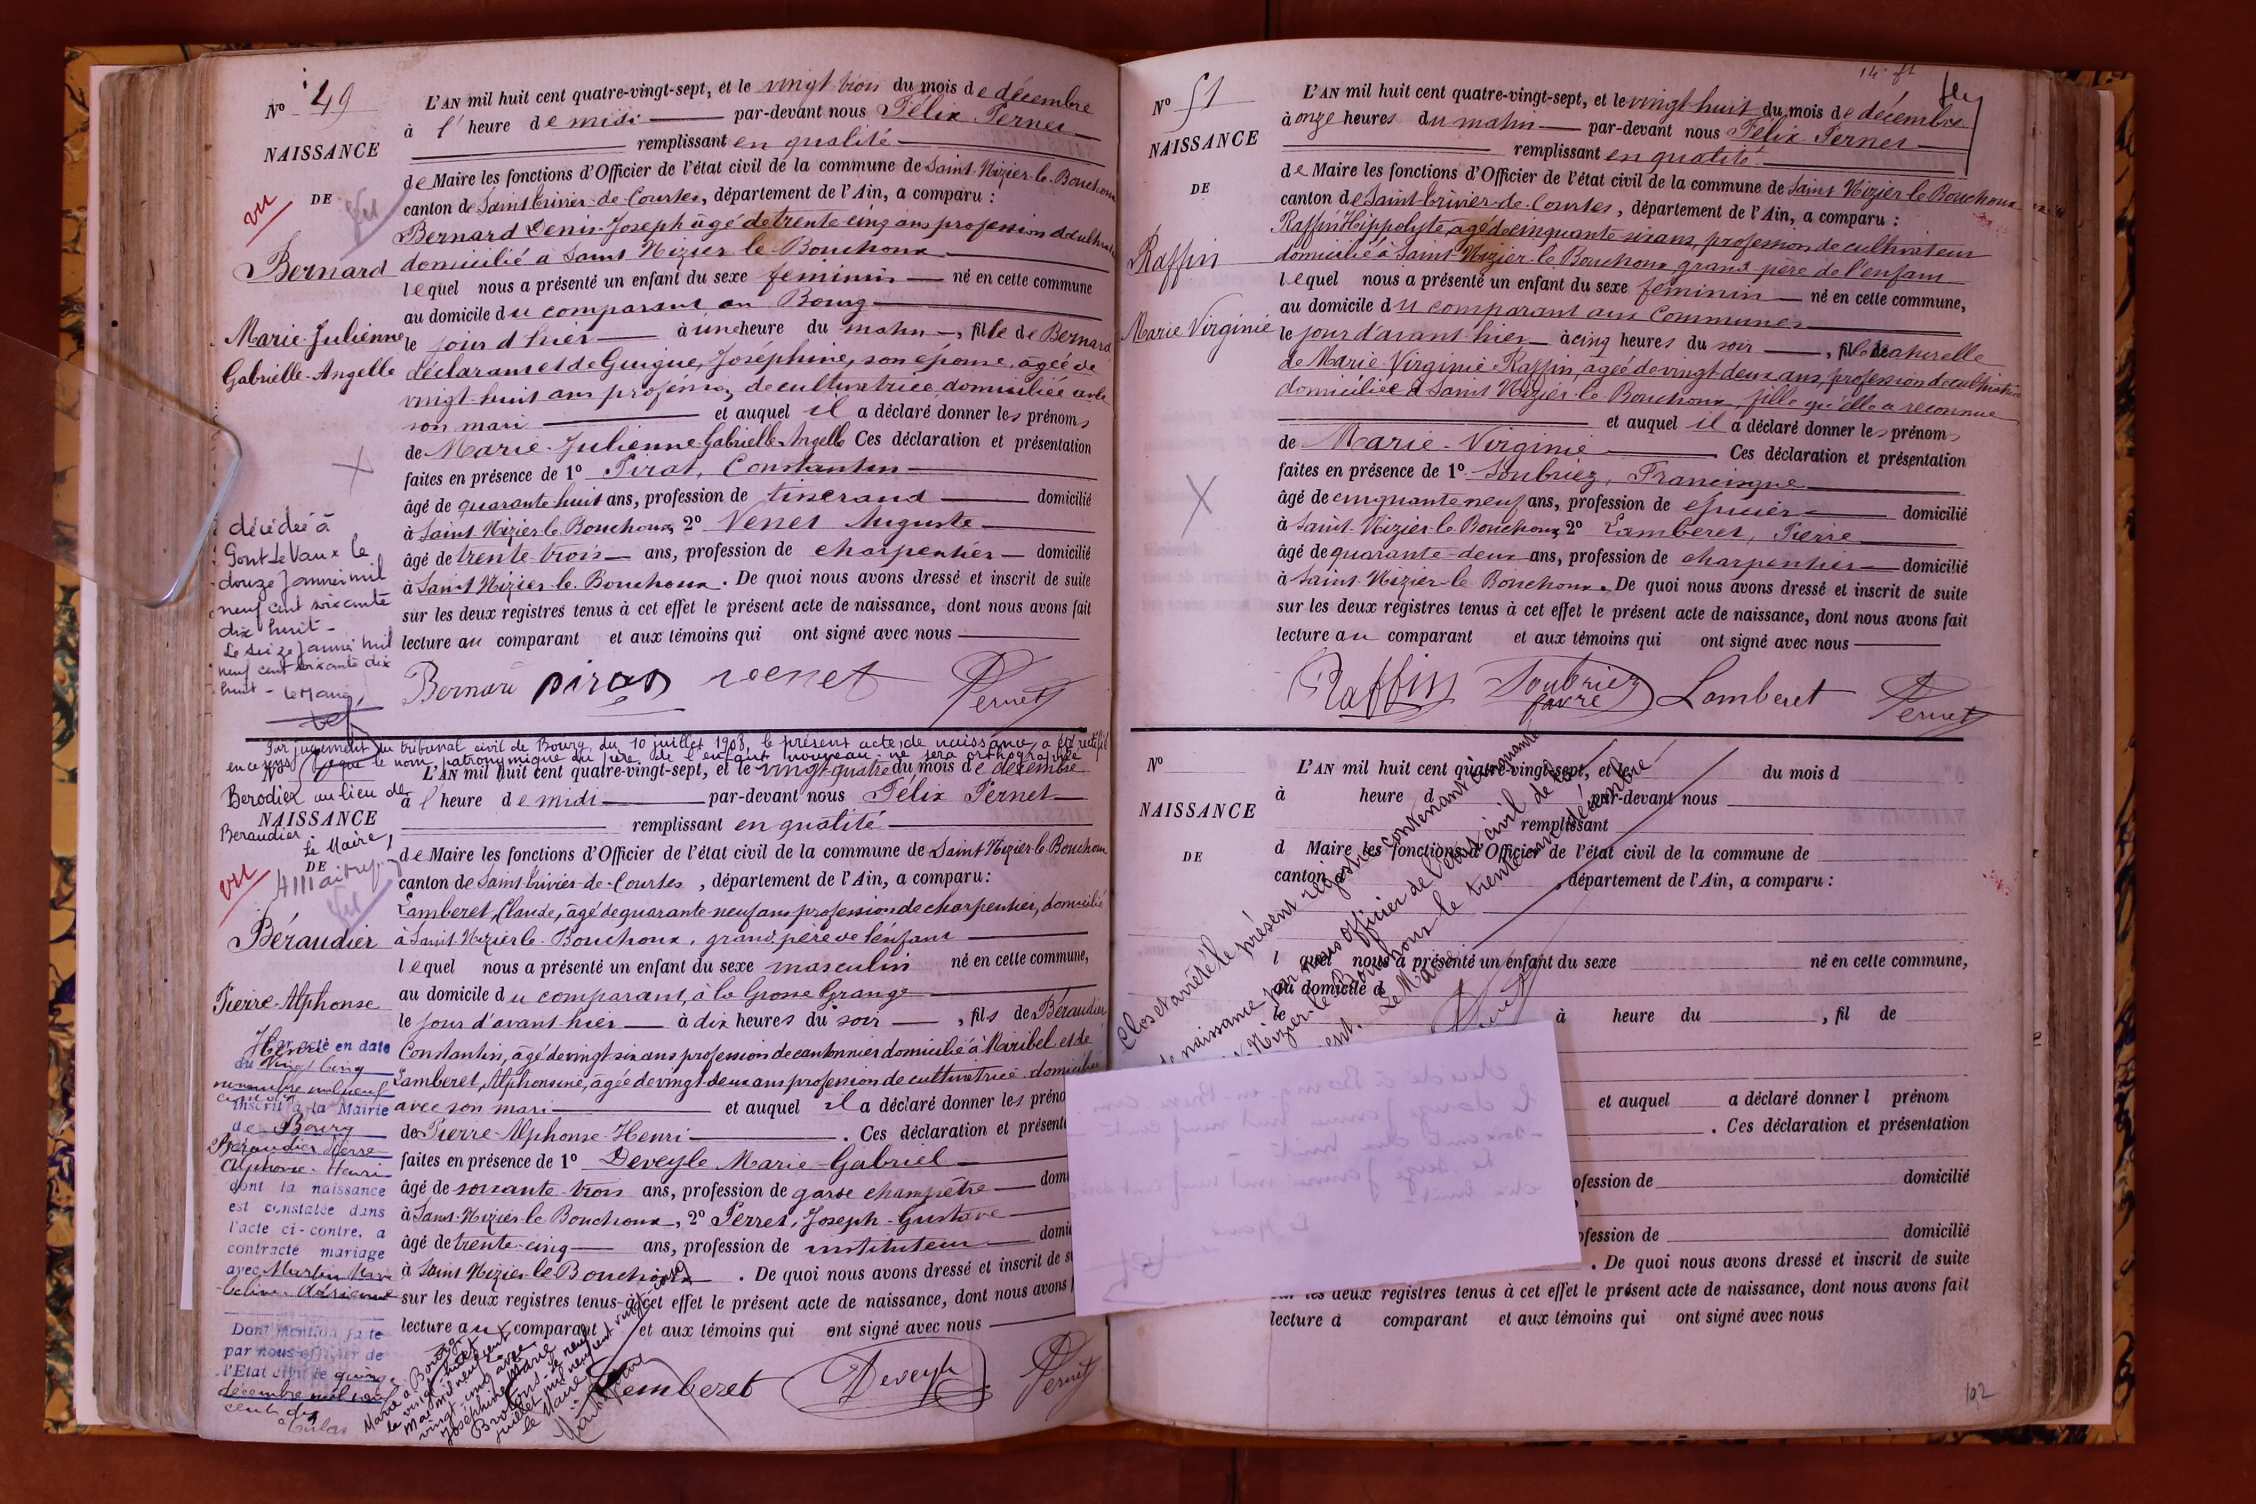 N° 49
NAISSANCE
DE
vu
Bernard
Marie-Julienne
Gabrielle-Angelle
L'AN mil huit cent quatre-vingt-sept, et le vingt trois du mois de décembre
à l'heure de midi par-devant nous Félix Pernet
remplissant en qualité
de Maire les fonctions d'Officier de l'état civil de la commune de Saint-Nizier-le-Bouchoux
canton de Saint-trivier-de-Courtes, département de l'Ain, a comparu :
Bernard Denis-Joseph âgé de trente cinq ans profession de cultivateur
domicilié à Saint Nizier le Bouchoux
lequel nous a présenté un enfant du sexe féminin né en cette commune
au domicile du comparant au Bourg
le jour d'hier à une heure du matin, fille de Bernard
déclarant et de Guigue, Joséphine, son épouse, âgée de
vingt-huit ans profession de cultivatrice domiciliée avec
son mari et auquel il a déclaré donner les prénoms
de Marie-Julienne-Gabrielle-Angelle Ces déclaration et présentation
faites en présence de 1° Pirat, Constantin
âgé de quarante huit ans, profession de tisserand domicilié
à Saint Nizier le Bouchoux, 2° Venet Auguste
âgé de trente-trois ans, profession de charpentier domicilié
à Saint Nizier-le-Bouchoux. De quoi nous avons dressé et inscrit de suite
sur les deux registres tenus à cet effet le présent acte de naissance, dont nous avons fait
lecture au comparant et aux témoins qui ont signé avec nous
Bernard pirat venet Pernet
décédée à
Pont de Vaux le
douze janvier mil
neuf cent soixante
dix huit -
Le seize janvier mil
neuf cent soixante dix
huit - Le Maire,
Par jugement du tribunal civil de Bourg du 10 juillet 1908, le présent acte de naissance a été rectifié
en ce sens que le nom patronymique du père de l'enfant nouveau-né sera orthographié
Berodier au lieu de
Beraudier
Le Maire,
N° 50
NAISSANCE
DE
vu
Béraudier
Pierre-Alphonse
Henri
L'AN mil huit cent quatre-vingt-sept, et le vingt-quatre du mois de décembre
à l'heure de midi par-devant nous Félix Pernet
remplissant en qualité
de Maire les fonctions d'Officier de l'état civil de la commune de Saint-Nizier-le-Bouchoux
canton de Saint trivier-de-Courtes, département de l'Ain, a comparu :
Lamberet, Claude, âgé de quarante-neuf ans profession de charpentier, domicilié
à Saint Nizier le Bouchoux, grand père de l'enfant
lequel nous a présenté un enfant du sexe masculin né en cette commune,
au domicile du comparant, à la Grosse Grange
le jour d'avant hier à dix heures du soir, fils de Béraudier
Constantin, âgé de vingt six ans profession de cantonnier domicilié à Miribel et de
Lamberet, Alphonsine, âgée de vingt-deux ans profession de cultivatrice domiciliée
avec son mari et auquel il a déclaré donner les préno
de Pierre-Alphonse-Henri. Ces déclaration et présent
faites en présence de 1° Deveyle Marie-Gabriel
âgé de soixante-trois ans, profession de garde champêtre dom
à Saint-Nizier-le Bouchoux, 2° Perret, Joseph-Gustave
âgé de trente-cinq ans, profession de instituteur domi
à Saint Nizier-le Bouchoux. De quoi nous avons dressé et inscrit de s
sur les deux registres tenus à cet effet le présent acte de naissance, dont nous avons
lecture aux comparant et aux témoins qui ont signé avec nous
Lamberet Deveyle Pernet
Par acte en date
du vingt cinq
novembre mil neuf
cent dix
inscrit à la Mairie
de Bourg
Béraudier Pierre
Alphonse-Henri
dont la naissance
est constatée dans
l'acte ci-contre, a
contracté mariage
avec Martin
Dont mention faite
par nous officier de
l'Etat civil le quinze
décembre mil neuf
cent dix
Marié à Bourg
le vingt-huit
mai mil neuf cent
vingt-cinq avec
Joséphine Marie
juillet mil neuf cent vingt-cinq
le Maire
N° 51
NAISSANCE
DE
Raffin
Marie Virginie
L'AN mil huit cent quatre-vingt-sept, et le vingt-huit du mois de décembre
à onze heures du matin par-devant nous Félix Pernet
remplissant en qualité
de Maire les fonctions d'Officier de l'état civil de la commune de Saint Nizier le Bouchoux
canton de Saint-trivier-de-Courtes, département de l'Ain, a comparu :
Raffin Hippolyte, âgé de cinquante six ans, profession de cultivateur
domicilié à Saint-Nizier-le-Bouchoux grand-père de l'enfant
lequel nous a présenté un enfant du sexe féminin né en cette commune,
au domicile du comparant aux Communes
le jour d'avant-hier à cinq heures du soir, fille naturelle
de Marie-Virginie Raffin, âgée de vingt deux ans, profession de cultivatrice
domiciliée à Saint Nizier-le Bouchoux, fille qu'elle a reconnue
et auquel il a déclaré donner les prénoms
de Marie-Virginie. Ces déclaration et présentation
faites en présence de 1° Soubriez, Francisque
âgé de cinquante neuf ans, profession de épicier domicilié
à Saint-Nizier le Bouchoux, 2° Lamberet, Pierre
âgé de quarante-deux ans, profession de charpentier domicilié
à Saint-Nizier-le Bouchoux. De quoi nous avons dressé et inscrit de suite
sur les deux registres tenus à cet effet le présent acte de naissance, dont nous avons fait
lecture au comparant et aux témoins qui ont signé avec nous
Raffin Soubriez favre Lamberet Pernet
N°
NAISSANCE
DE
L'AN mil huit cent quatre-vingt-sept, et le du mois d
à heure d par-devant nous
remplissant
d Maire les fonctions d'Officier de l'état civil de la commune de
canton, département de l'Ain, a comparu :
l quel nous a présenté un enfant du sexe né en cette commune,
au domicile d
le à heure du, fil de
et auquel a déclaré donner l prénom
. Ces déclaration et présentation
ofession de domicilié
ofession de domicilié
. De quoi nous avons dressé et inscrit de suite
sur les deux registres tenus à cet effet le présent acte de naissance, dont nous avons fait
lecture à comparant et aux témoins qui ont signé avec nous
Clos et arrêté le présent registre contenant cinquante
de naissance par nous officier de l'état civil de la
Nizier-le-Bouchoux le trente un décembre
Le Maire
102